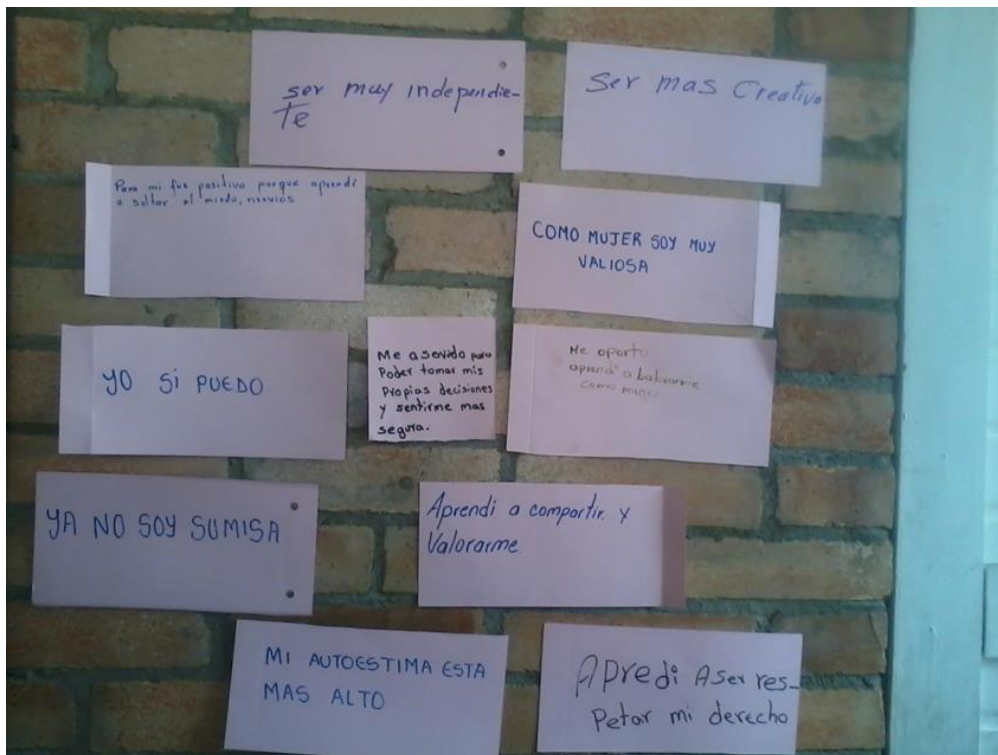 ser muy independie-
te
Ser mas Creativo
Para mi fue positivo porque aprendi
a soltar el miedo, nervios
COMO MUJER SOY MUY
VALIOSA
YO SI PUEDO
Me a sevido para
Poder tomar mis
Propias decisiones
y sentirme mas
segura.
Me oporto
aprendi a balorarme
como mujer
YA NO SOY SUMISA
Aprendi a compartir y
Valorarme.
MI AUTOESTIMA ESTA
MAS ALTO
Apredi Aser res-
Petar mi derecho